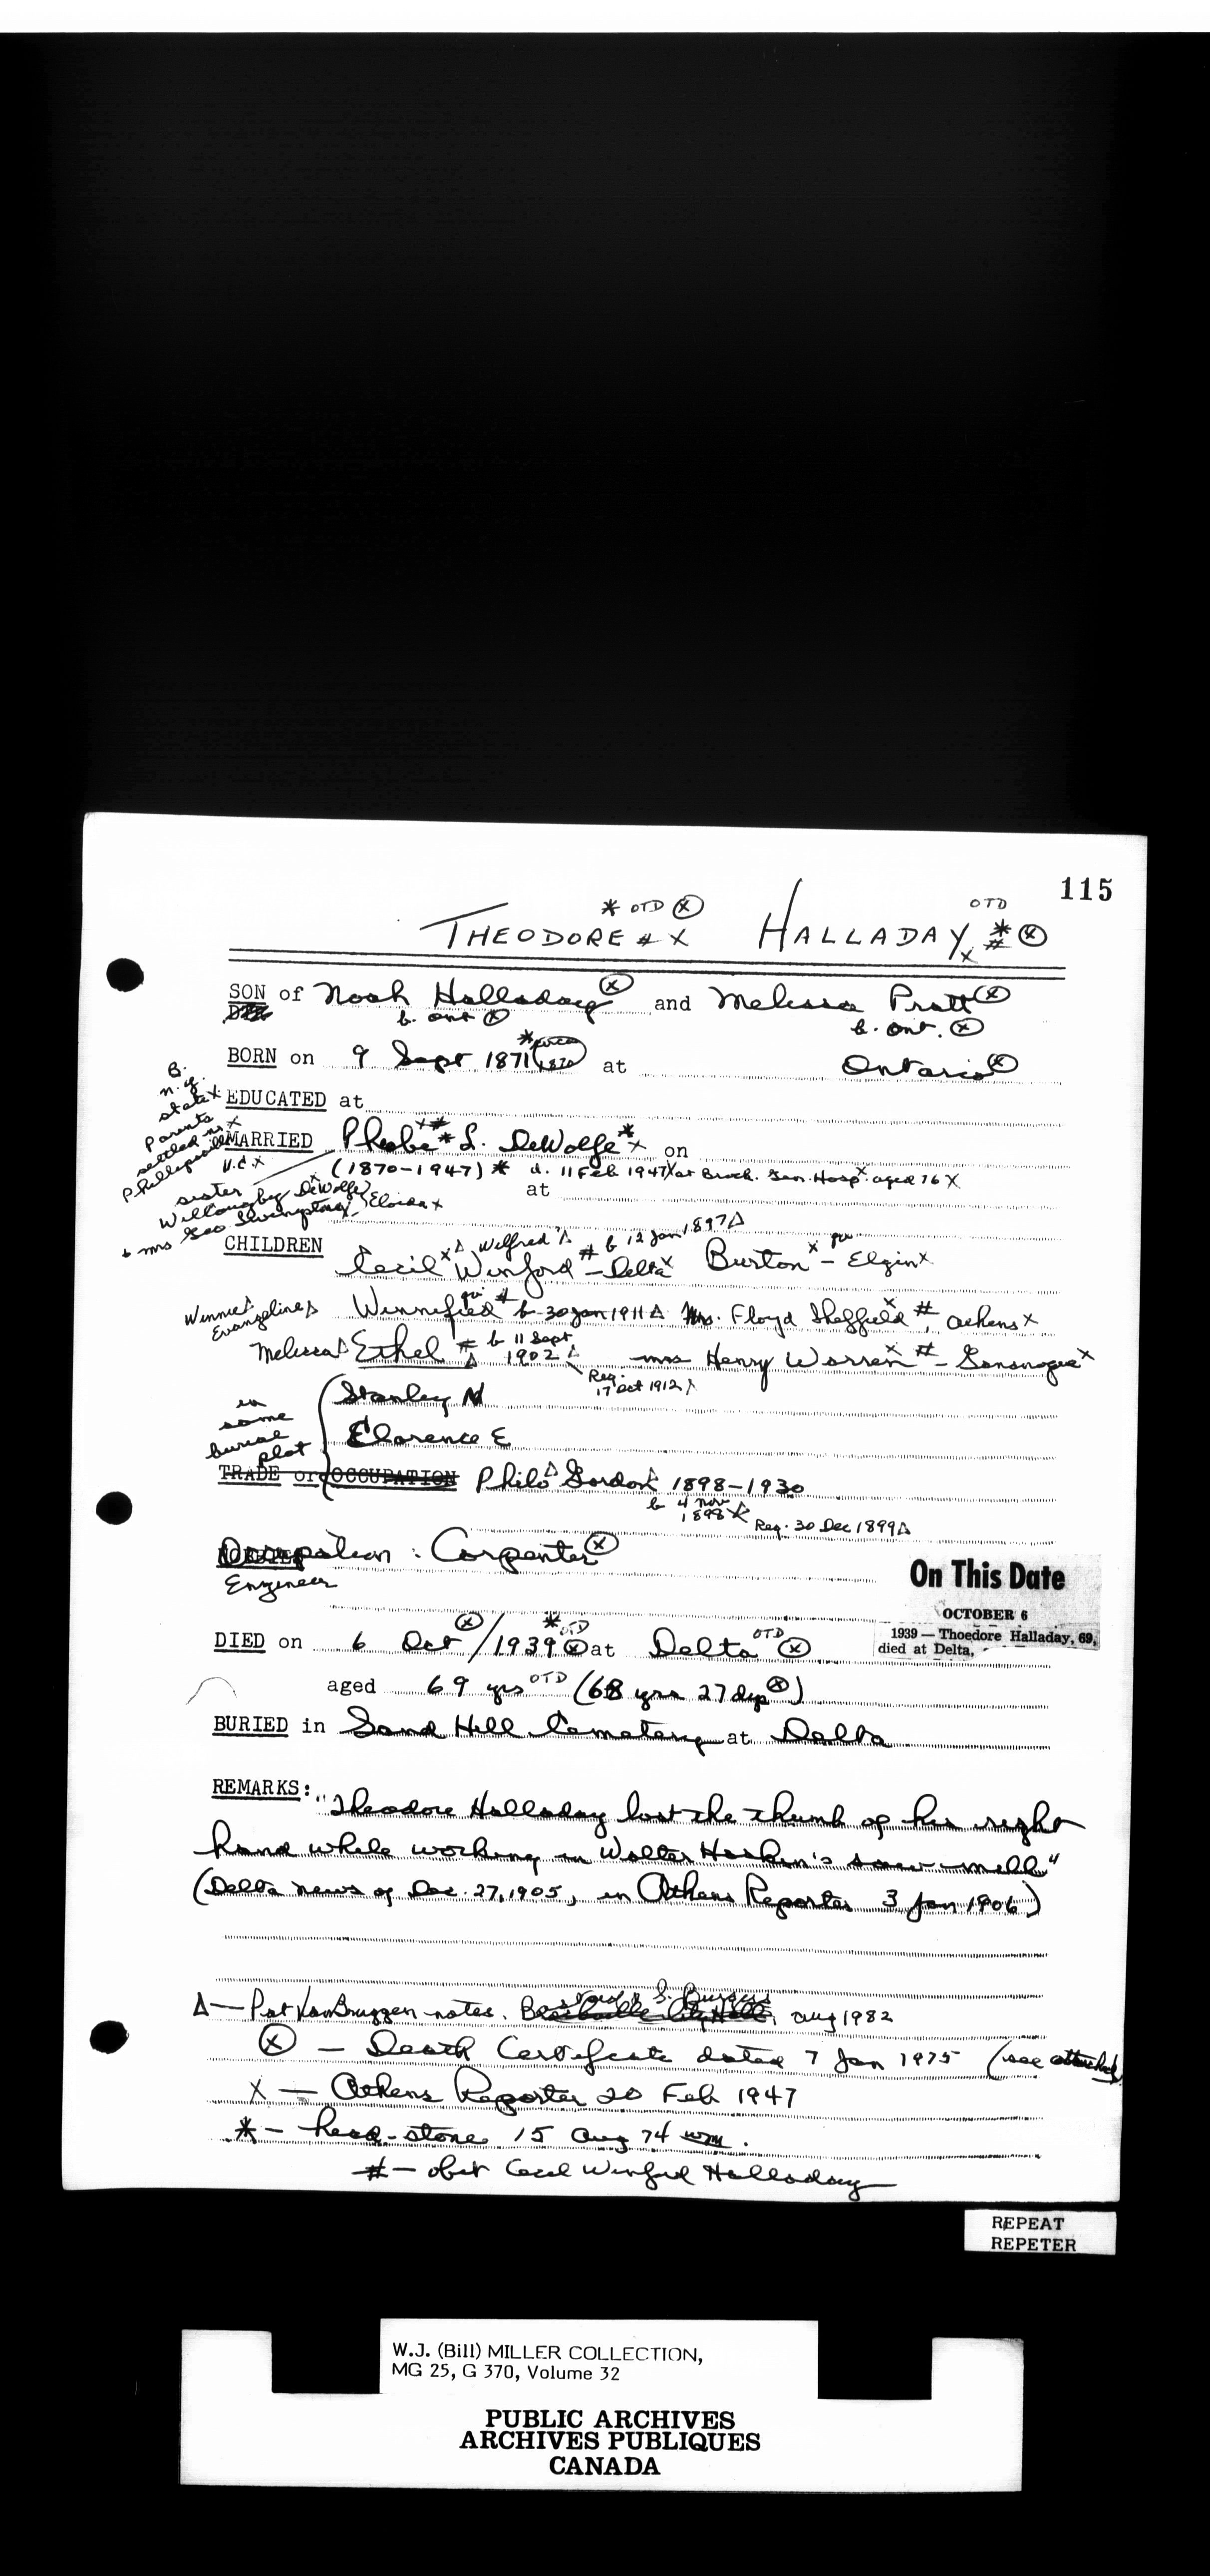 115
* OTD ⓧ OTD
THEODORE # X HALLADAY * # ⓧ
x
SON of Noah Halladay ⓧ and Melissa Pratt ⓧ
b. Ont ⓧ b. Ont. ⓧ
BORN on 9 Sept 1871 * (1870) at Ontario ⓧ
B.
N.Y.
State x
EDUCATED at
Parents
settled in x
Phillipsville
U.C. x
MARRIED Phoebe x # * L. DeWolfe * x on
(1870-1947) * d. 11 Feb 1947 x at Brock. Gen. Hosp x aged 76 X
at
sister
Willoughby DeWolfe x
& Mrs Geo Livingston, Eloida x
CHILDREN
Δ Wilfred Δ # b 12 Jan 1897 Δ
Cecil x Winford - Delta x Burton x - Elgin x
Winnie Δ
Evangeline Δ
Winnifred # b 30 Jan 1911 Δ Mrs. Floyd Sheffield x #, Athens x
Melissa Δ Ethel # Δ b 11 Sept
1902 Δ Mrs Henry Warren x # - Gananoque x
Reg.
17 Oct 1912 Δ
in
same
burial
plot
Stanley N
Clarence E
TRADE or OCCUPATION Philo Δ Gordon Δ 1898-1930
b 4 Nov
1898 Δ Reg. 30 Dec 1899 Δ
Occupation : Carpenter ⓧ
Engineer
On This Date
OCTOBER 6
1939 — Thoedore Halladay, 69,
died at Delta,
DIED on 6 Oct ⓧ / 1939 * OTD ⓧ at Delta OTD ⓧ
aged 69 yrs OTD (68 yrs 27 dys ⓧ)
BURIED in Sand Hill Cemetery at Delta
REMARKS: "Theodore Halladay lost the thumb of his right
hand while working in Walter Haskin's saw-mill"
(Delta news of Dec. 27, 1905, in Athens Reporter 3 Jan 1906)
Δ — Pat VanBruggen notes. S. Burgess, Aug 1982
ⓧ — Death Certificate dated 7 Jan 1975 (see attached)
X — Athens Reporter 20 Feb 1947
* — head-stone 15 Aug 74 wm.
# — obit Cecil Winford Halladay
REPEAT
REPETER
W.J. (Bill) MILLER COLLECTION,
MG 25, G 370, Volume 32
PUBLIC ARCHIVES
ARCHIVES PUBLIQUES
CANADA